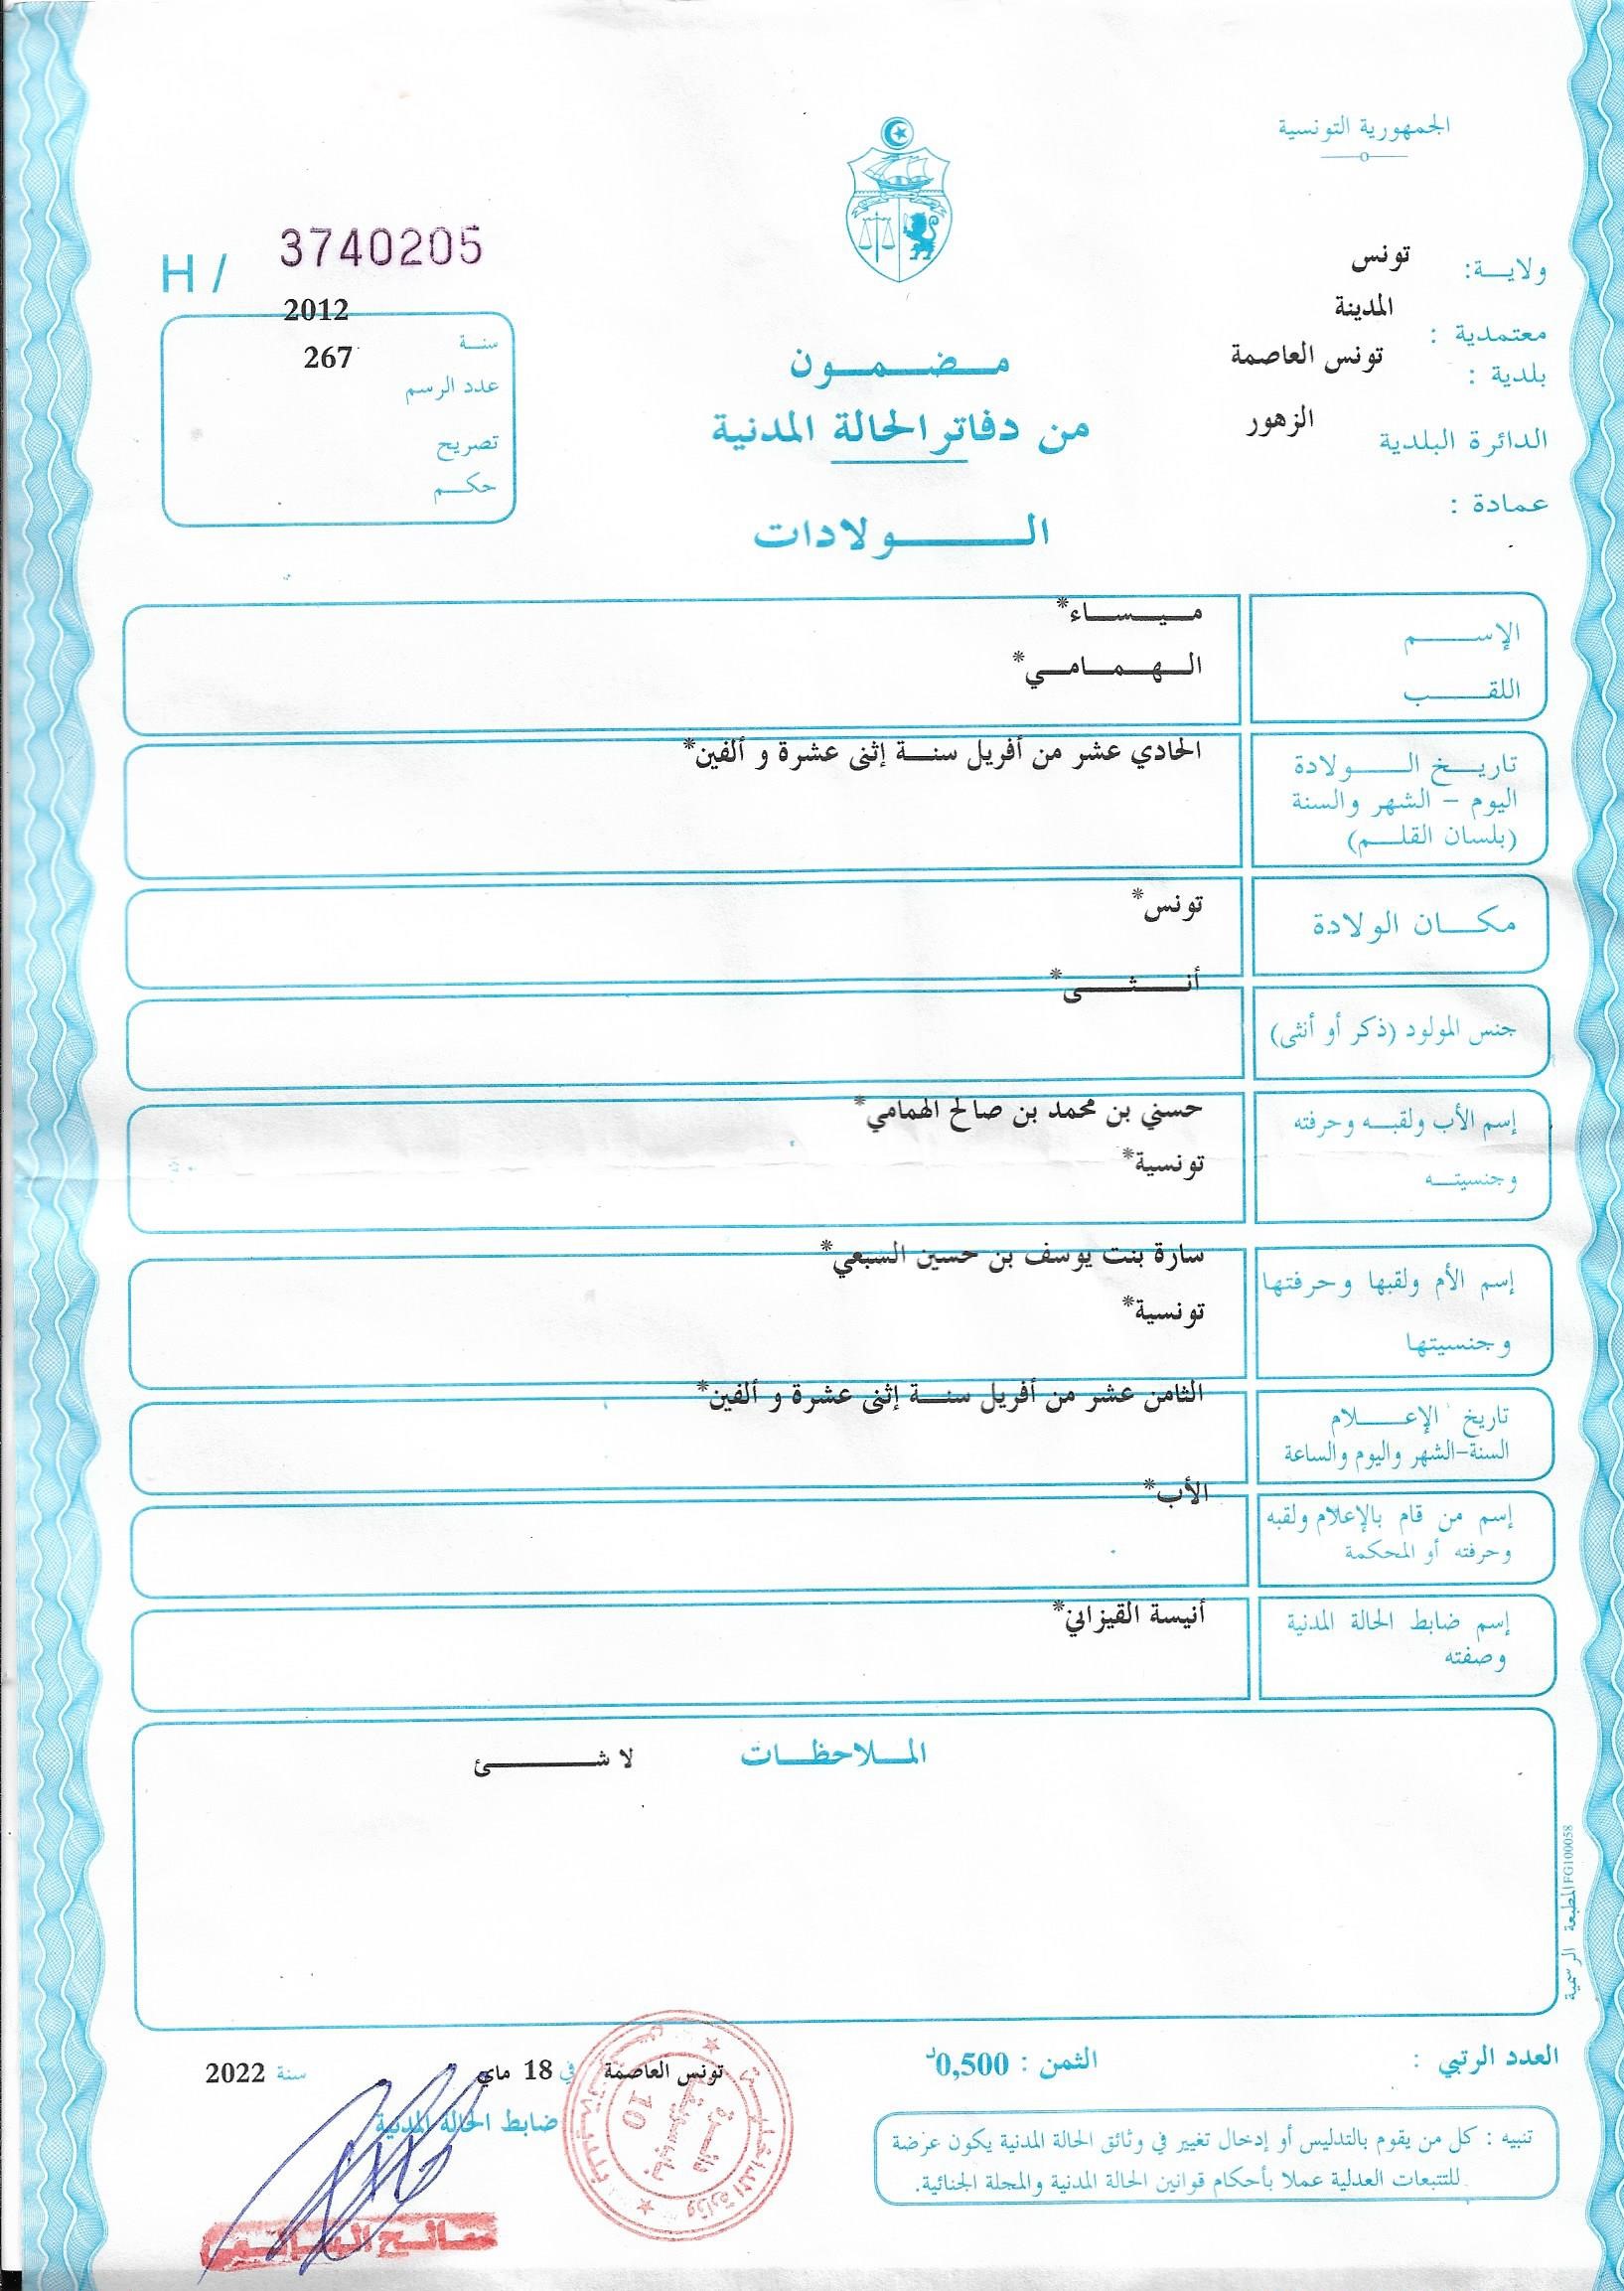 الجمهورية التونسية
ولاية: تونس
معتمدية : المدينة
بلدية : تونس العاصمة
الدائرة البلدية الزهور
عمادة :
H / 3740205
سنة 2012
عدد الرسم 267
تصريح
حكم
مضمون
من دفاتر الحالة المدنية
الولادات
الإسم ميساء*
اللقب الهمامي*
تاريخ الولادة الحادي عشر من أفريل سنة إثنى عشرة و ألفين*
اليوم - الشهر والسنة
(بلسان القلم)
مكان الولادة تونس*
جنس المولود (ذكر أو أنثى) أنثى*
إسم الأب ولقبه وحرفته حسني بن محمد بن صالح الهمامي*
وجنسيته تونسية*
إسم الأم ولقبها وحرفتها سارة بنت يوسف بن حسين السبعي*
وجنسيتها تونسية*
تاريخ الإعلام الثامن عشر من أفريل سنة إثنى عشرة و ألفين*
السنة-الشهر واليوم والساعة
إسم من قام بالإعلام ولقبه الأب*
وحرفته أو المحكمة
إسم ضابط الحالة المدنية أنيسة القيزاني*
وصفته
الملاحظات لا شئ
المطبعة الرسمية FG100058
العدد الرتبي :
الثمن : 0,500د
تونس العاصمة في 18 ماي سنة 2022
ضابط الحالة المدنية
تنبيه : كل من يقوم بالتدليس أو إدخال تغيير في وثائق الحالة المدنية يكون عرضة
للتتبعات العدلية عملا بأحكام قوانين الحالة المدنية والمجلة الجنائية.
10